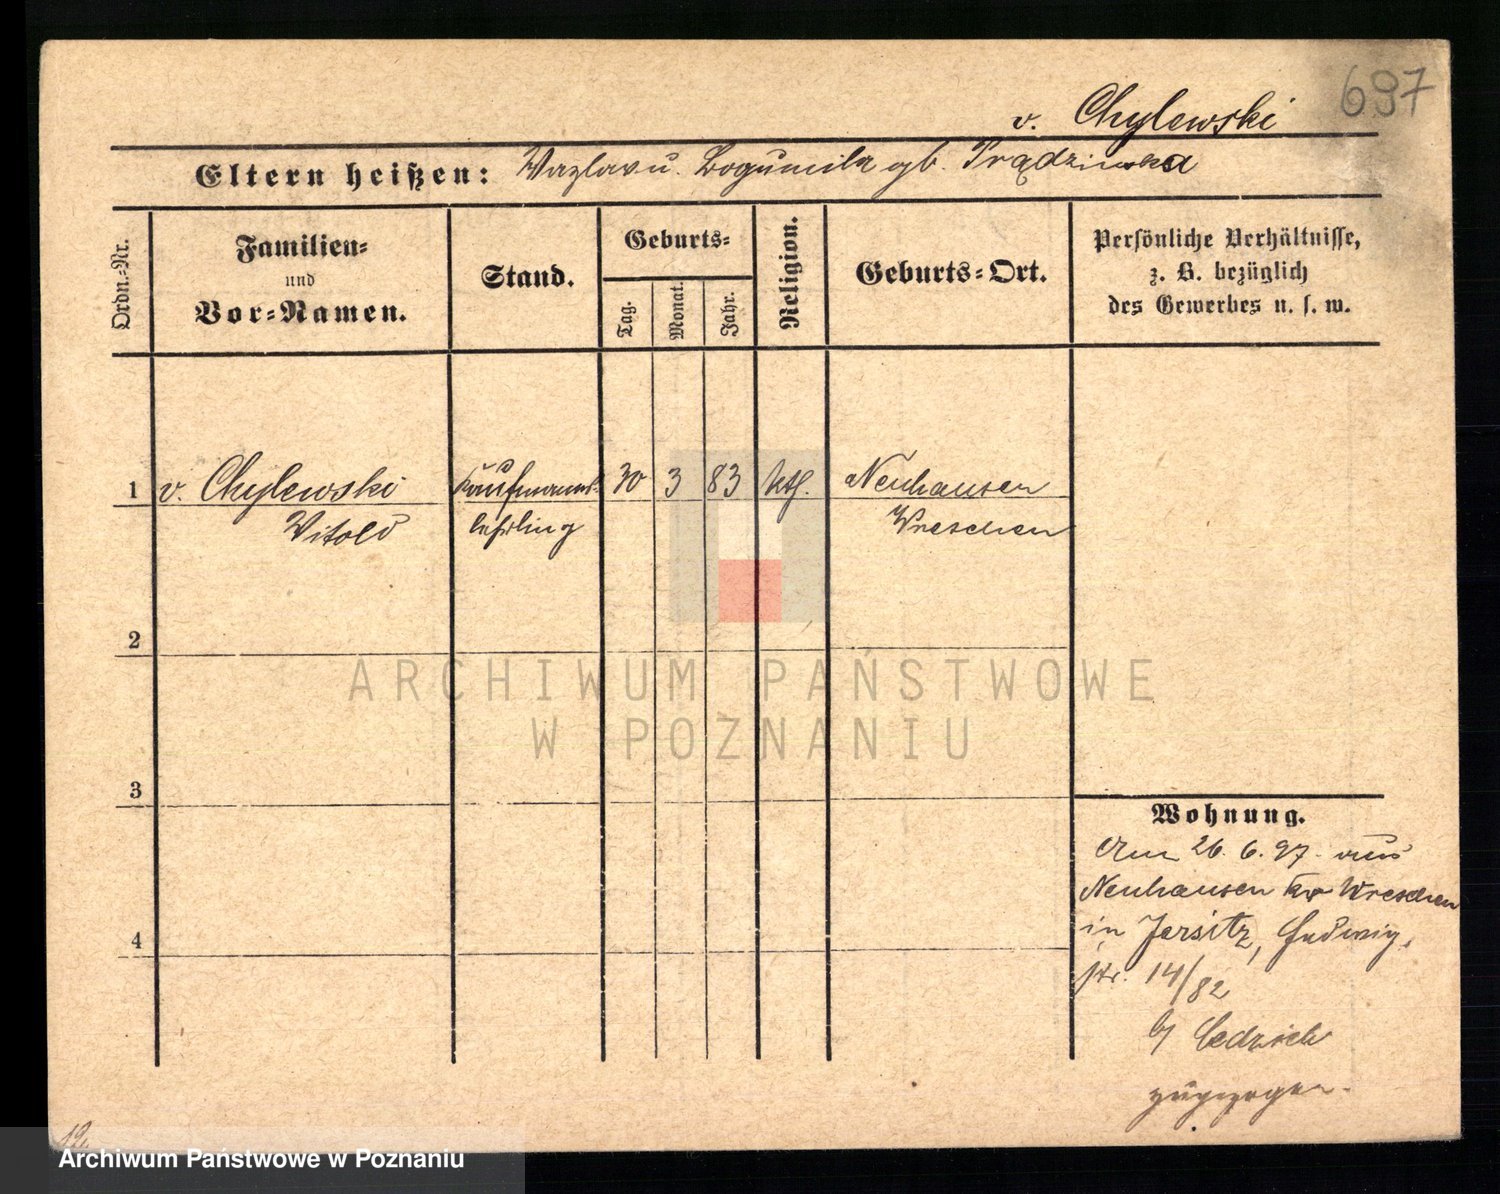 697
v. Chylewski
Eltern heißen: Wazlav u. Bogumila gb. Prądzinska
Ordn.-Nr.
Familien-
und
Vor-Namen.
Stand.
Geburts-
Tag.
Monat.
Jahr.
Religion.
Geburts-Ort.
Persönliche Verhältnisse,
z. B. bezüglich
des Gewerbes u. s. w.
1 v. Chylewski Kaufmanns- 30 3 83 kth. Neuhausen
Witold lehrling Wreschen
2
3
4
Wohnung.
Am 26. 6. 97. aus
Neuhausen Kr Wreschen
in Jersitz, Hedwig-
str. 14/82
b/ Cedzich
zugezogen.
ARCHIWUM PAŃSTWOWE
W POZNANIU
Archiwum Państwowe w Poznaniu